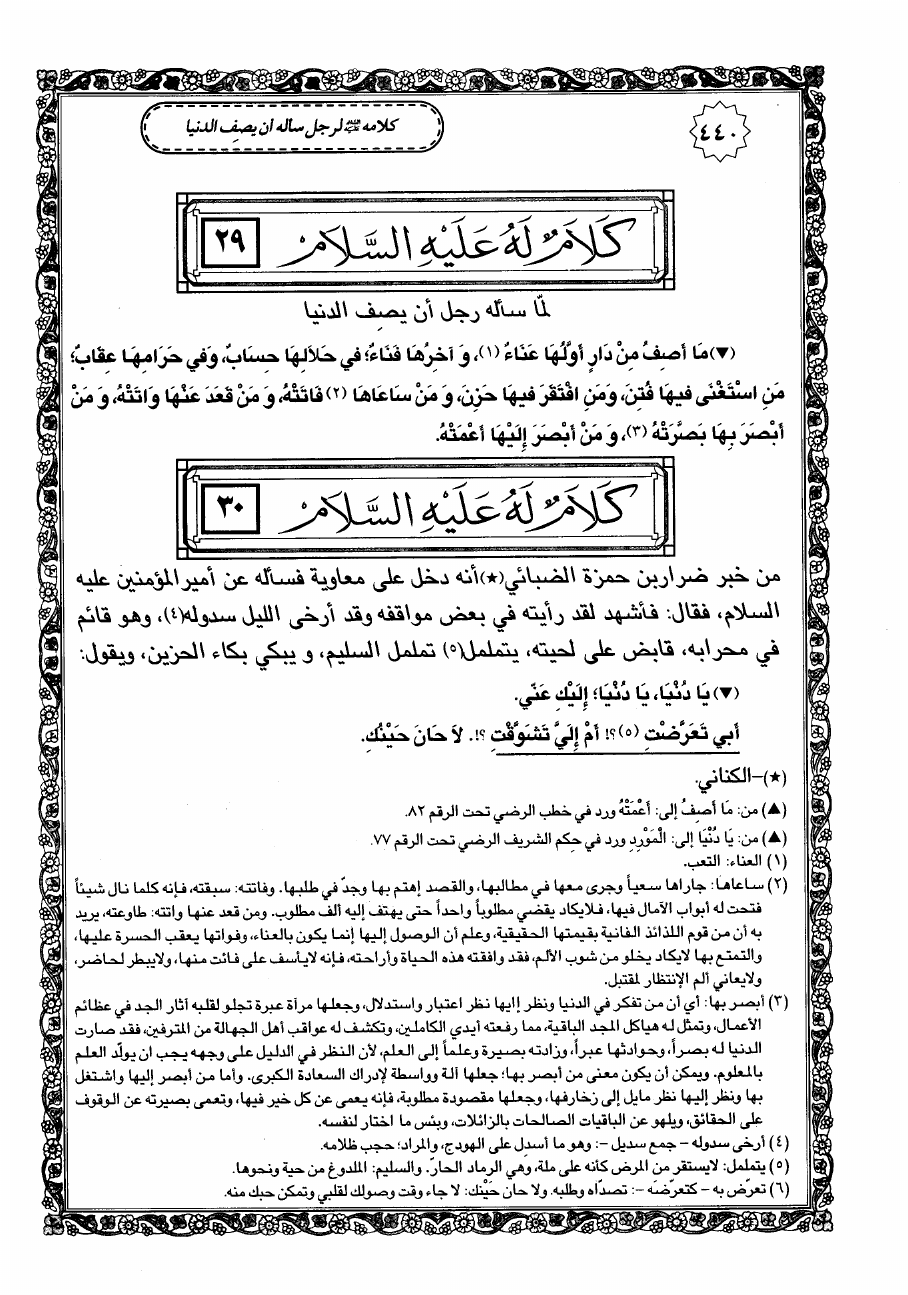 ٤٤٠
كلامه عليه السلام لرجل سأله أن يصف الدنيا
كَلَامٌ لَهُ عَلَيْهِ السَّلَامُ ٢٩
لمّا سأله رجل أن يصف الدنيا
(▼) مَا أَصِفُ مِنْ دَارٍ أَوَّلُهَا عَنَاءٌ (١)، وَ آخِرُهَا فَنَاءٌ؛ في حَلاَلِهَا حِسَابٌ، وَفي حَرَامِهَا عِقَابٌ؛
مَنِ اسْتَغْنَى فيهَا فُتِنَ، وَمَنِ افْتَقَرَ فيهَا حَزِنَ، وَ مَنْ سَاعَاهَا (٢) فَاتَتْهُ، وَ مَنْ قَعَدَ عَنْهَا وَاتَتْهُ، وَ مَنْ
أَبْصَرَ بِهَا بَصَّرَتْهُ (٣)، وَ مَنْ أَبْصَرَ إِلَيْهَا أَعْمَتْهُ.
كَلَامٌ لَهُ عَلَيْهِ السَّلَامُ ٣٠
من خبر ضراربن حمزة الضبائي(★)أنه دخل على معاوية فسأله عن أميرالمؤمنين عليه
السلام، فقال: فأشهد لقد رأيته في بعض مواقفه وقد أرخى الليل سدوله(٤)، وهو قائم
في محرابه، قابض على لحيته، يتململ(٥) تململ السليم، و يبكي بكاء الحزين، ويقول:
(▼) يَا دُنْيَا، يَا دُنْيَا؛ إِلَيْكِ عَنّي.
أَبي تَعَرَّضْتِ (٥)؟! أَمْ إِلَيَّ تَشَوَّقْتِ ؟!. لاَ حَانَ حَيْنُكِ.
(★)-الكناني.
(▲) من: مَا أَصِفُ إلى: أَعْمَتْهُ ورد في خطب الرضي تحت الرقم ٨٢.
(▲) من: يَا دُنْيَا إلى: الْمَوْرِدِ ورد في حِكم الشريف الرضي تحت الرقم ٧٧.
(١) العناء: التعب.
(٢) ساعاها: جاراها سعياً وجرى معها في مطالبها، والقصد إهتم بها وجدّ في طلبها. وفاتته: سبقته، فإنه كلما نال شيئاً
فتحت له أبواب الآمال فيها، فلايكاد يقضي مطلوباً واحداً حتى يهتف إليه ألف مطلوب. ومن قعد عنها واتته: طاوعته، يريد
به أن من قوم اللذائذ الفانية بقيمتها الحقيقية، وعلم أن الوصول إليها إنما يكون بالعناء، وفواتها يعقب الحسرة عليها،
والتمتع بها لايكاد يخلو من شوب الألم، فقد وافقته هذه الحياة وأراحته، فإنه لايأسف على فائت منها، ولايبطر لحاضر،
ولايعاني ألم الإنتظار لمقتبل.
(٣) أبصر بها: أي أن من تفكر في الدنيا ونظر إايها نظر اعتبار واستدلال، وجعلها مرآة عبرة تجلو لقلبه آثار الجد في عظائم
الأعمال، وتمثل له هياكل المجد الباقية، مما رفعته أيدي الكاملين، وتكشف له عواقب أهل الجهالة من المترفين، فقد صارت
الدنيا له بصراً، وحوادثها عبراً، وزادته بصيرة وعلماً إلى العلم، لأن النظر في الدليل على وجهه يجب ان يولّد العلم
بالمعلوم. ويمكن أن يكون معنى من أبصر بها؛ جعلها آلة وواسطة لإدراك السعادة الكبرى. وأما من أبصر إليها واشتغل
بها ونظر إليها نظر مايل إلى زخارفها، وجعلها مقصودة مطلوبة، فإنه يعمى عن كل خير فيها، وتعمى بصيرته عن الوقوف
على الحقائق، ويلهو عن الباقيات الصالحات بالزائلات، وبئس ما اختار لنفسه.
(٤) أرخى سدوله – جمع سديل –: وهو ما أسدل على الهودج، والمراد؛ حجب ظلامه.
(٥) يتململ: لايستقر من المرض كأنه على ملة، وهي الرماد الحارّ. والسليم: الملدوغ من حية ونحوها.
(٦) تعرّض به – كتعرّضه –: تصدّاه وطلبه. ولا حان حَيْنك: لا جاء وقت وصولك لقلبي وتمكن حبك منه.